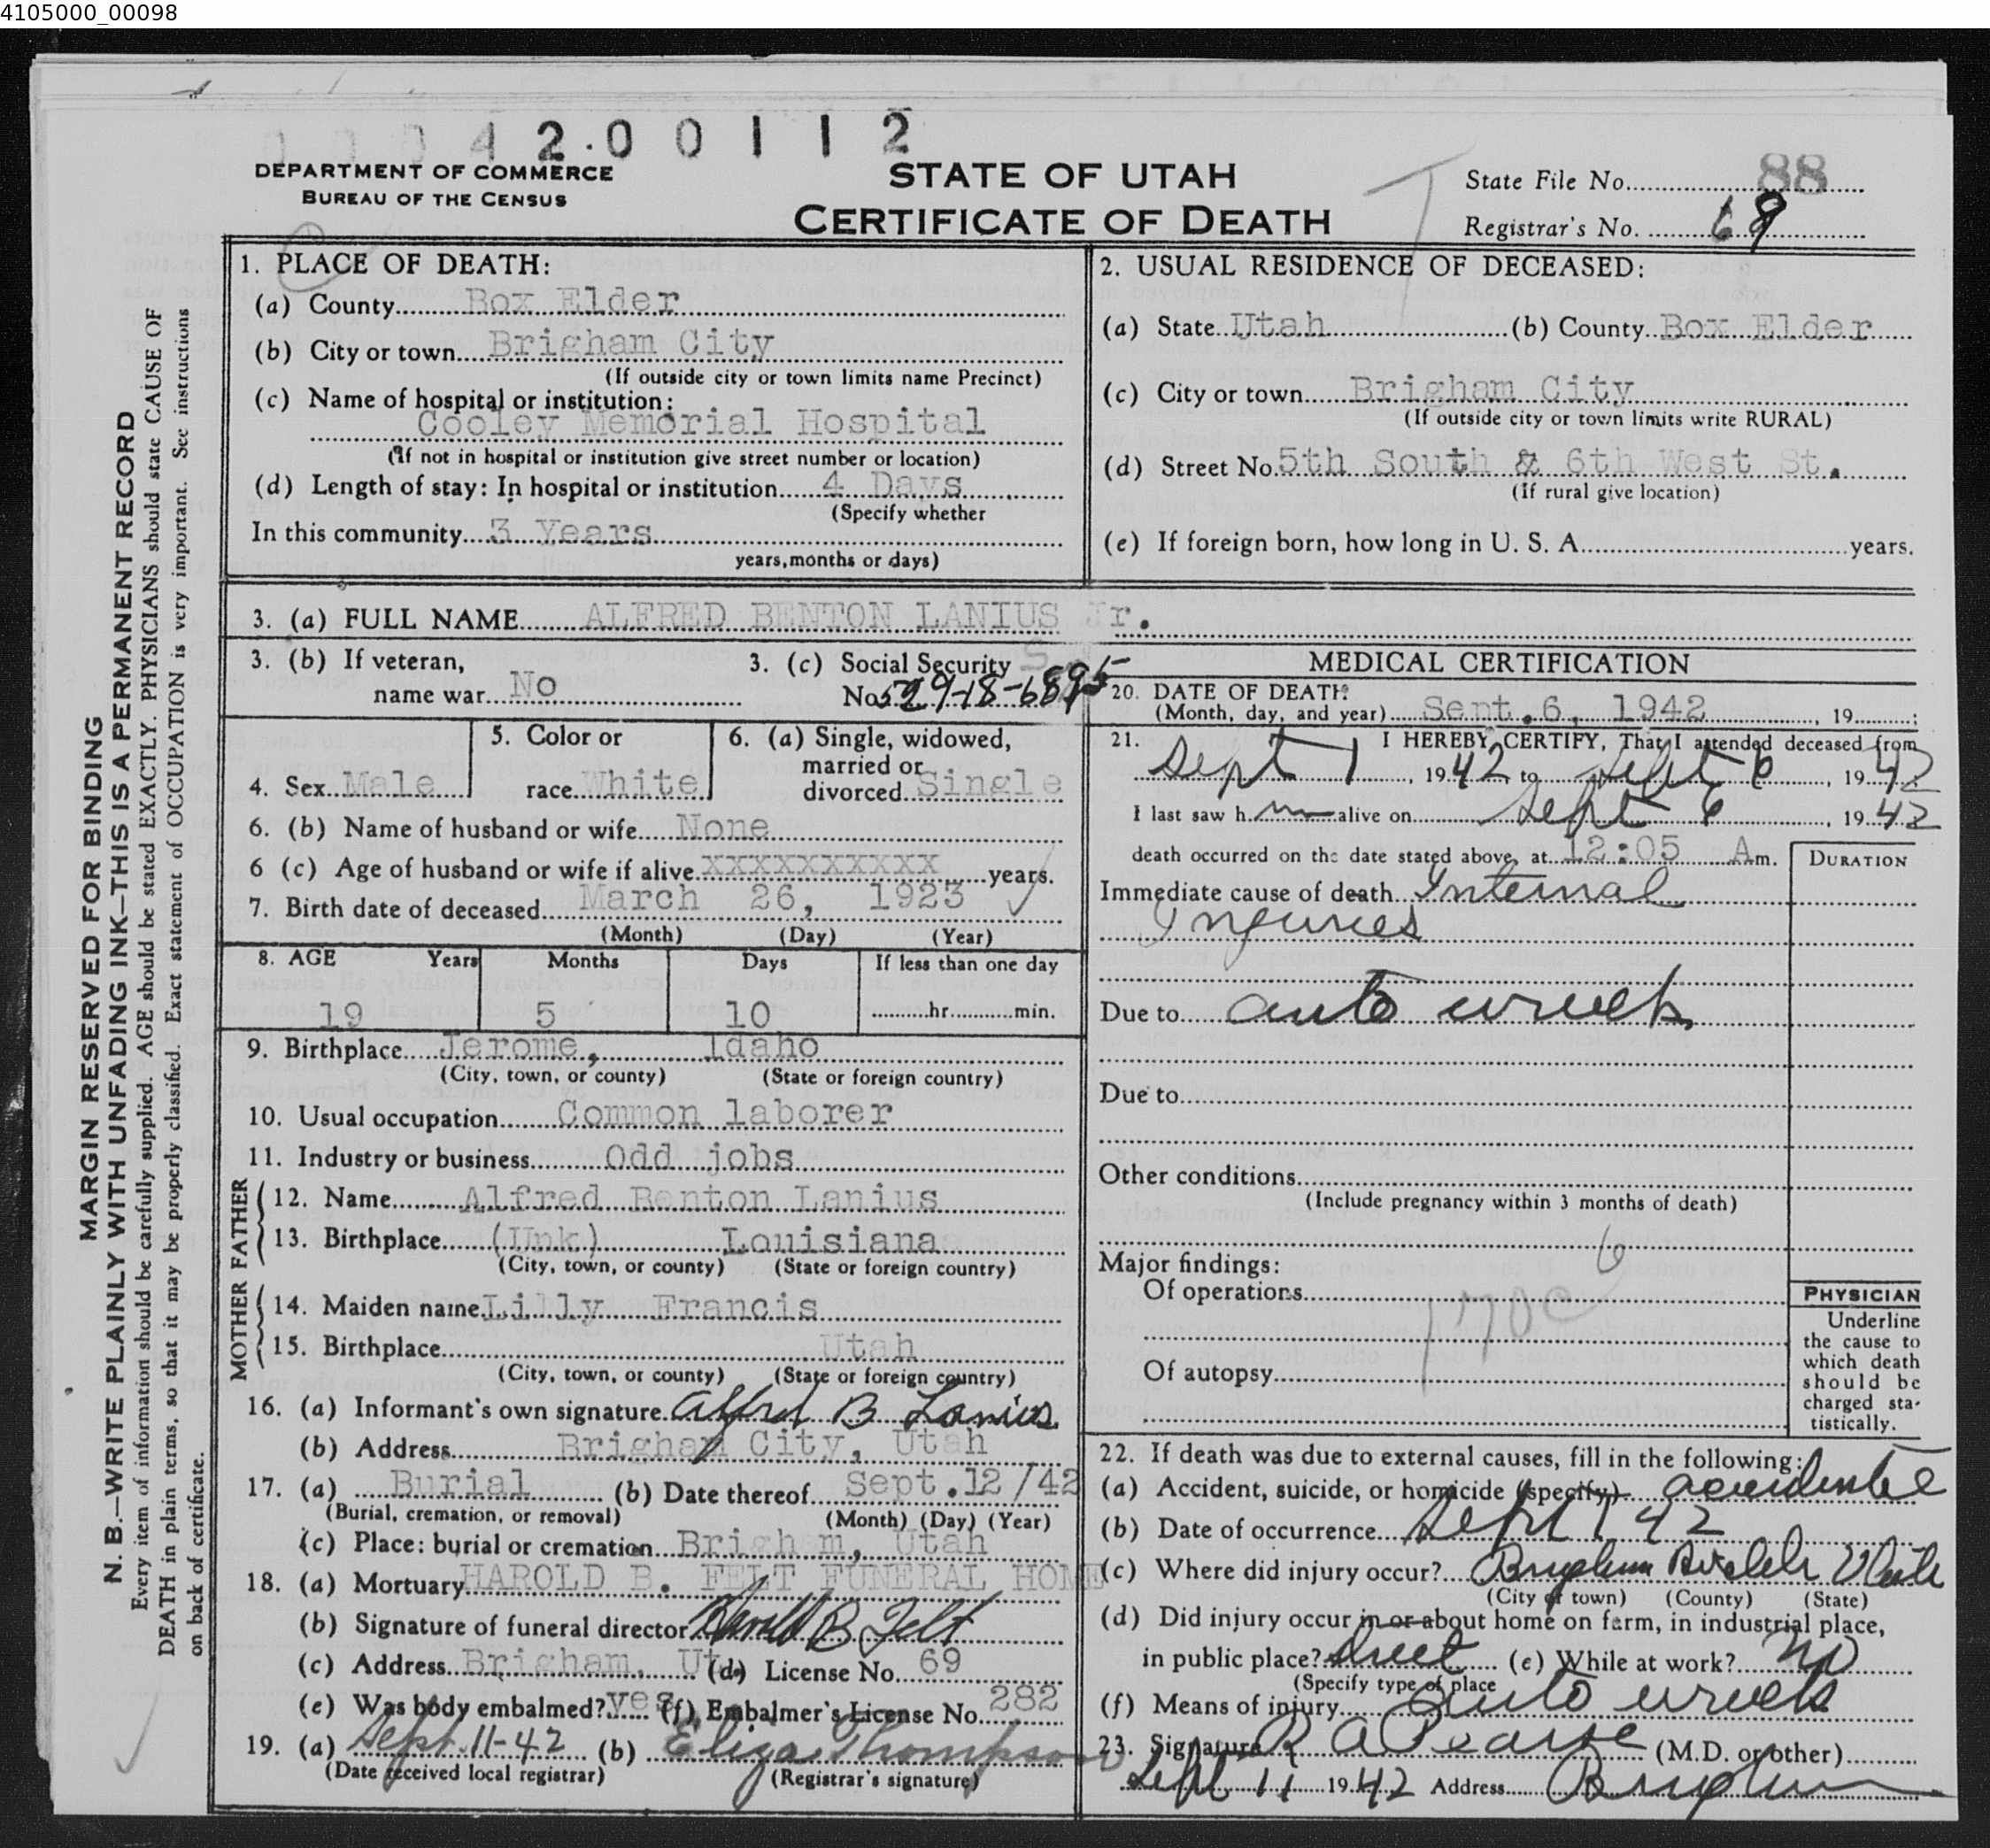 4105000_00098
0 0 0 4 2 0 0 1 1 2
DEPARTMENT OF COMMERCE
BUREAU OF THE CENSUS
STATE OF UTAH
CERTIFICATE OF DEATH
State File No. 88
Registrar's No. 69
MARGIN RESERVED FOR BINDING
N. B.—WRITE PLAINLY WITH UNFADING INK—THIS IS A PERMANENT RECORD
Every item of information should be carefully supplied. AGE should be stated EXACTLY. PHYSICIANS should state CAUSE OF
DEATH in plain terms, so that it may be properly classified. Exact statement of OCCUPATION is very important. See instructions
on back of certificate.
1. PLACE OF DEATH:
(a) County Box Elder
(b) City or town Brigham City
(If outside city or town limits name Precinct)
(c) Name of hospital or institution:
Cooley Memorial Hospital
(If not in hospital or institution give street number or location)
(d) Length of stay: In hospital or institution 4 Days
(Specify whether
In this community 3 Years
years, months or days)
2. USUAL RESIDENCE OF DECEASED:
(a) State Utah (b) County Box Elder
(c) City or town Brigham City
(If outside city or town limits write RURAL)
(d) Street No. 5th South & 6th West St.
(If rural give location)
(e) If foreign born, how long in U. S. A. years.
3. (a) FULL NAME ALFRED BENTON LANIUS Jr.
3. (b) If veteran,
name war No
3. (c) Social Security
No. 529-18-6895
4. Sex Male
5. Color or
race White
6. (a) Single, widowed,
married or
divorced Single
6. (b) Name of husband or wife None
6 (c) Age of husband or wife if alive XXXXXXXXXX years.
7. Birth date of deceased March 26, 1923
(Month) (Day) (Year)
8. AGE Years Months Days If less than one day
19 5 10 hr. min.
9. Birthplace Jerome, Idaho
(City, town, or county) (State or foreign country)
10. Usual occupation Common laborer
11. Industry or business Odd jobs
FATHER
12. Name Alfred Benton Lanius
13. Birthplace (Unk) Louisiana
(City, town, or county) (State or foreign country)
MOTHER
14. Maiden name Lilly Francis
15. Birthplace Utah
(City, town, or county) (State or foreign country)
16. (a) Informant's own signature Alfred B Lanius
(b) Address Brigham City, Utah
17. (a) Burial (b) Date thereof Sept. 12/42
(Burial, cremation, or removal) (Month) (Day) (Year)
(c) Place: burial or cremation Brigham, Utah
18. (a) Mortuary HAROLD B. FELT FUNERAL HOME
(b) Signature of funeral director Harold B Felt
(c) Address Brigham, Ut. (d) License No. 69
(e) Was body embalmed? yes (f) Embalmer's License No. 282
19. (a) Sept. 11-42 (b) Eliza Thompson
(Date received local registrar) (Registrar's signature)
MEDICAL CERTIFICATION
20. DATE OF DEATH:
(Month, day, and year) Sept. 6, 1942, 19 ;
21. I HEREBY CERTIFY, That I attended deceased from
Sept 1, 1942 to Sept 6, 1942
I last saw h im alive on Sept 6, 1942
death occurred on the date stated above, at 12:05 A m.
DURATION
Immediate cause of death Internal
Injuries
Due to auto wreck
Due to
Other conditions
(Include pregnancy within 3 months of death)
Major findings:
Of operations
170c
Of autopsy
PHYSICIAN
Underline
the cause to
which death
should be
charged sta-
tistically.
22. If death was due to external causes, fill in the following:
(a) Accident, suicide, or homicide (specify)
(b) Date of occurrence Sept 1 42
(c) Where did injury occur? Brigham Boxelder Utah
(City or town) (County) (State)
(d) Did injury occur in or about home on farm, in industrial place,
in public place? Street (e) While at work? No
(Specify type of place
(f) Means of injury Auto wreck
23. Signature R A Pearse (M.D. or other)
Sept 11 1942 Address Brigham